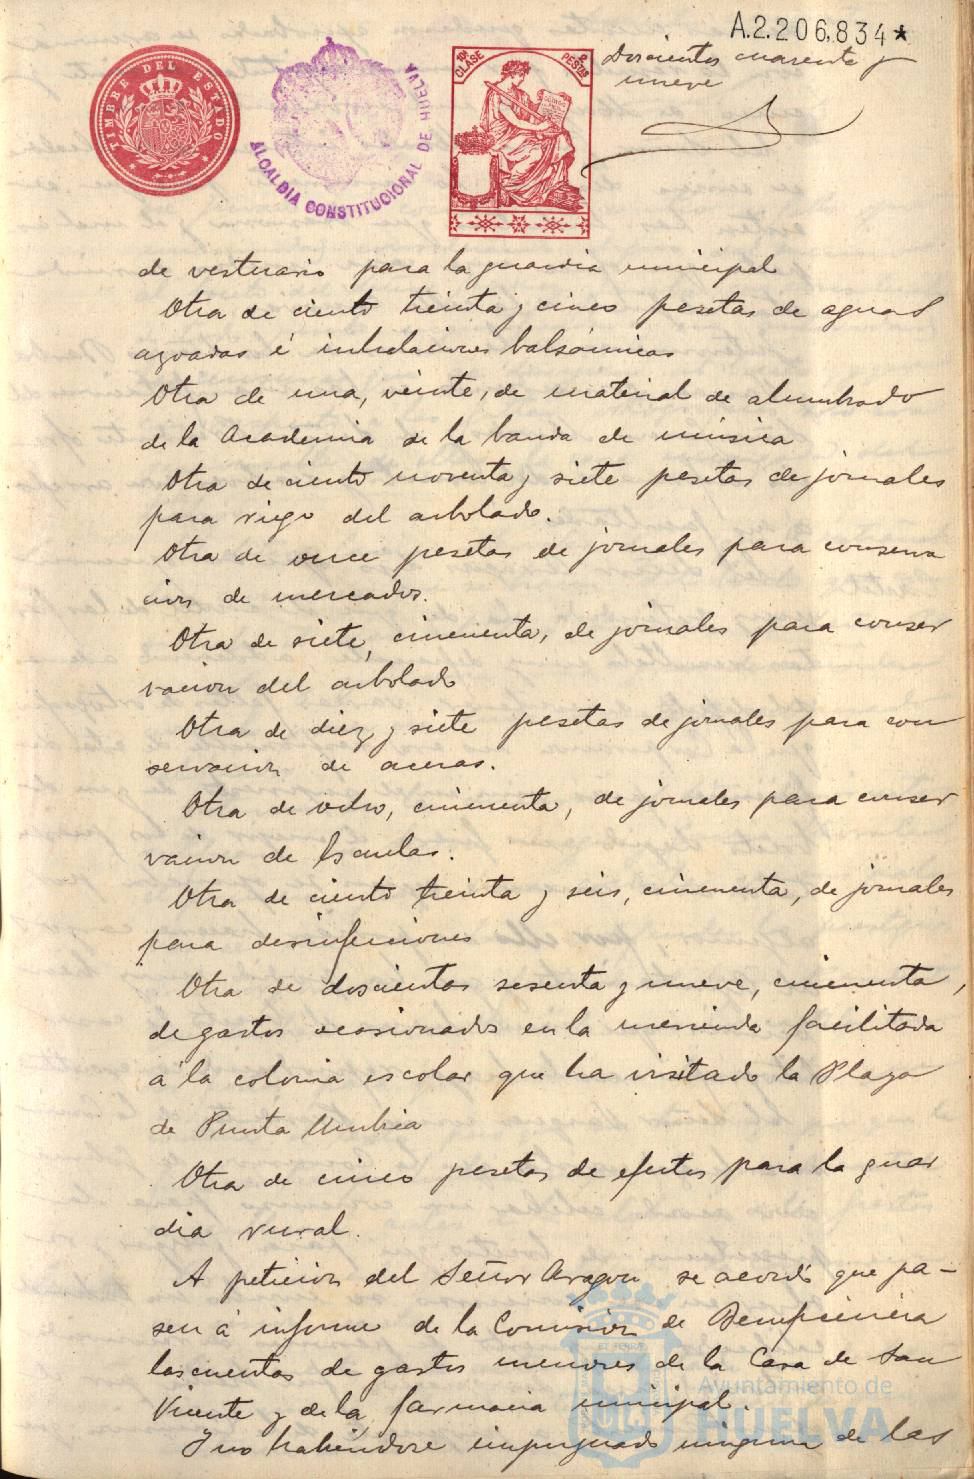 A.2.206,834*
Doscientos cuarenta y
nueve
TIMBRE DEL ESTADO
ALCALDIA CONSTITUCIONAL DE HUELVA
10ª CLASE
2 PESETAS
de vestuario para la guardia municipal
Otra de ciento treinta y cinco pesetas de aguas
azoadas é inhalaciones balsámicas
Otra de una, veinte, de material de alumbrado
de la Academia de la banda de música
Otra de ciento noventa y siete pesetas de jornales
para riego del arbolado.
Otra de once pesetas de jornales para conserva
cion de mercados.
Otra de siete, cincuenta, de jornales para conser
vacion del arbolado
Otra de diez y siete pesetas de jornales para con
servacion de aceras.
Otra de ocho, cincuenta, de jornales para conser
vacion de Escuelas.
Otra de ciento treinta y seis, cincuenta, de jornales
para desinfecciones
Otra de doscientas sesenta y nueve, cincuenta,
de gastos ocasionados en la merienda facilitada
á la colonia escolar que ha visitado la Playa
de Punta Umbria
Otra de cinco pesetas de efectos para la guar
dia rural.
A peticion del Señor Aragon se acordó que pa-
sen á informe de la Comision de Beneficencia
las cuentas de gastos menores de la Casa de San
Vicente y de la farmacia municipal.
Y no habiendose impugnado ninguna de las
Ayuntamiento de
HUELVA